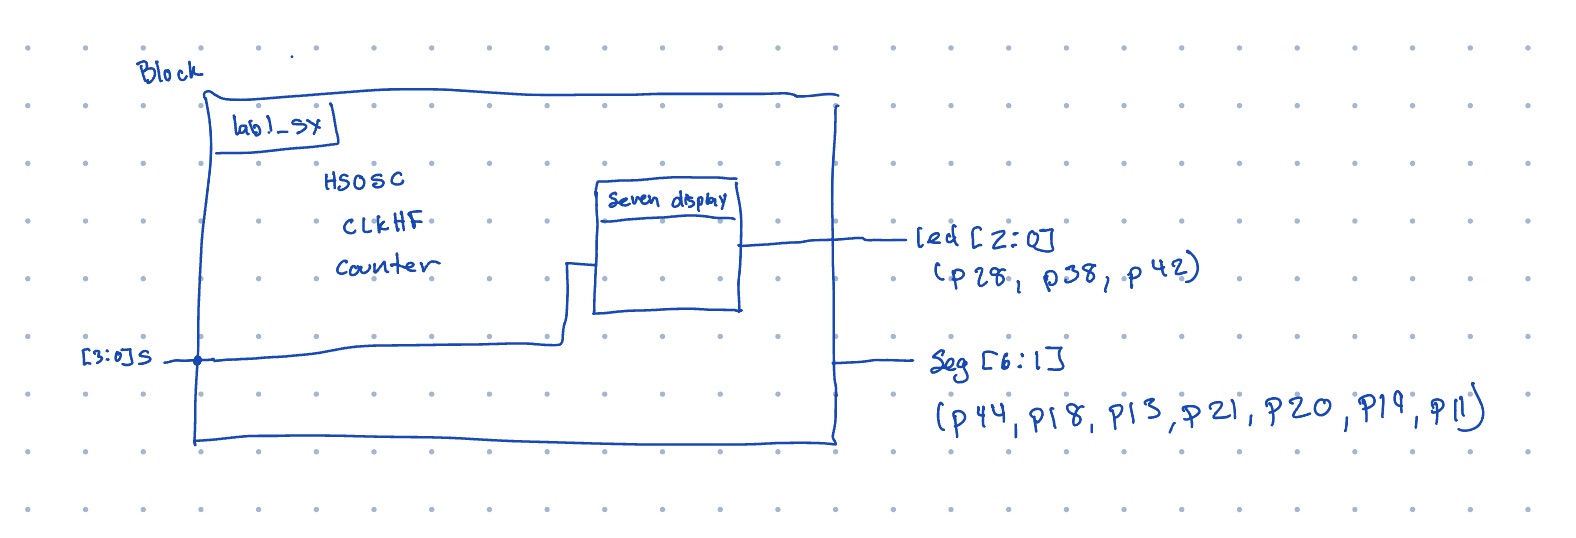 Block
lab1_sx
HSOSC
CLKHF
Counter
Seven display
led [2:0]
(p28, p38, p42)
[3:0]s
Seg [6:1]
(p44, p18, p13, p21, p20, p19, p11)